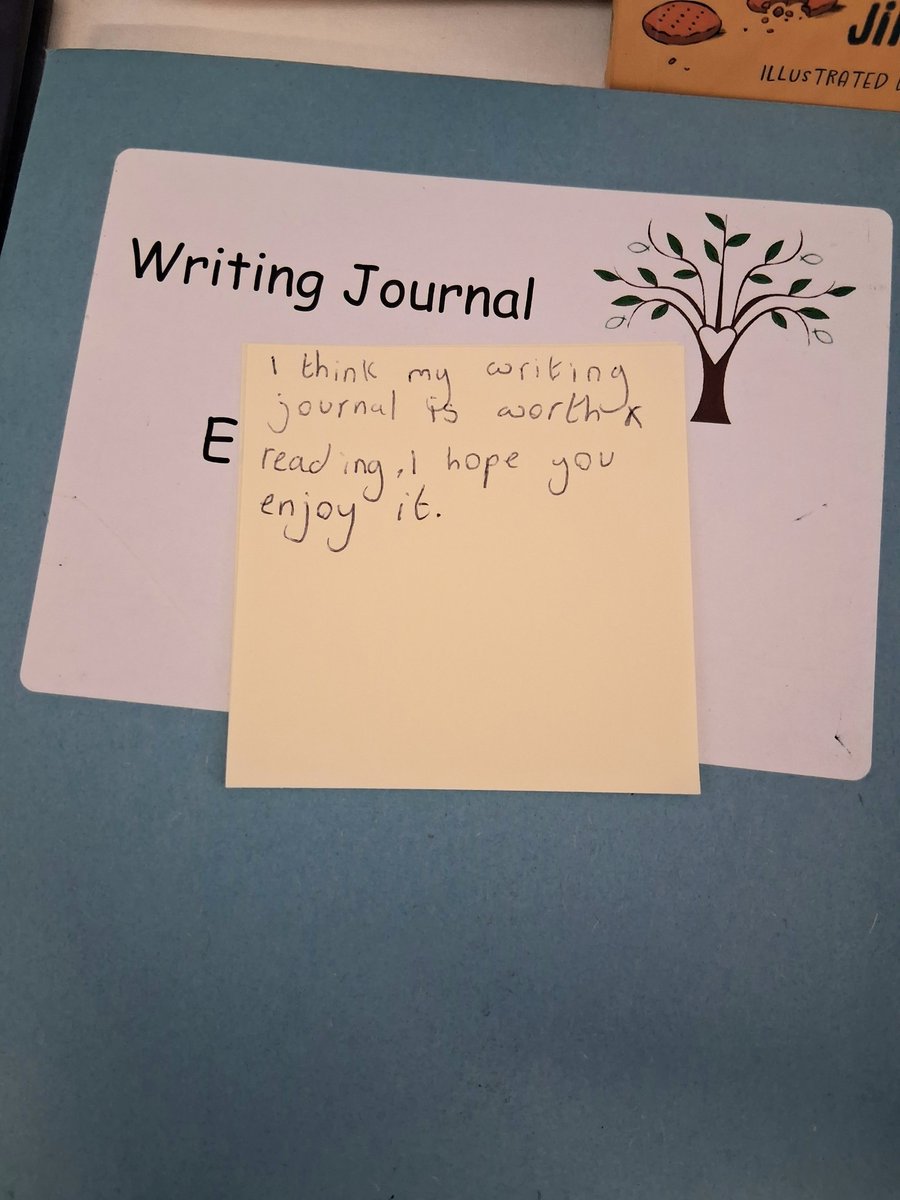 Ji
ILLUSTRATED
Writing Journal
E
I think my writing
journal is worth
reading, I hope you
enjoy it.